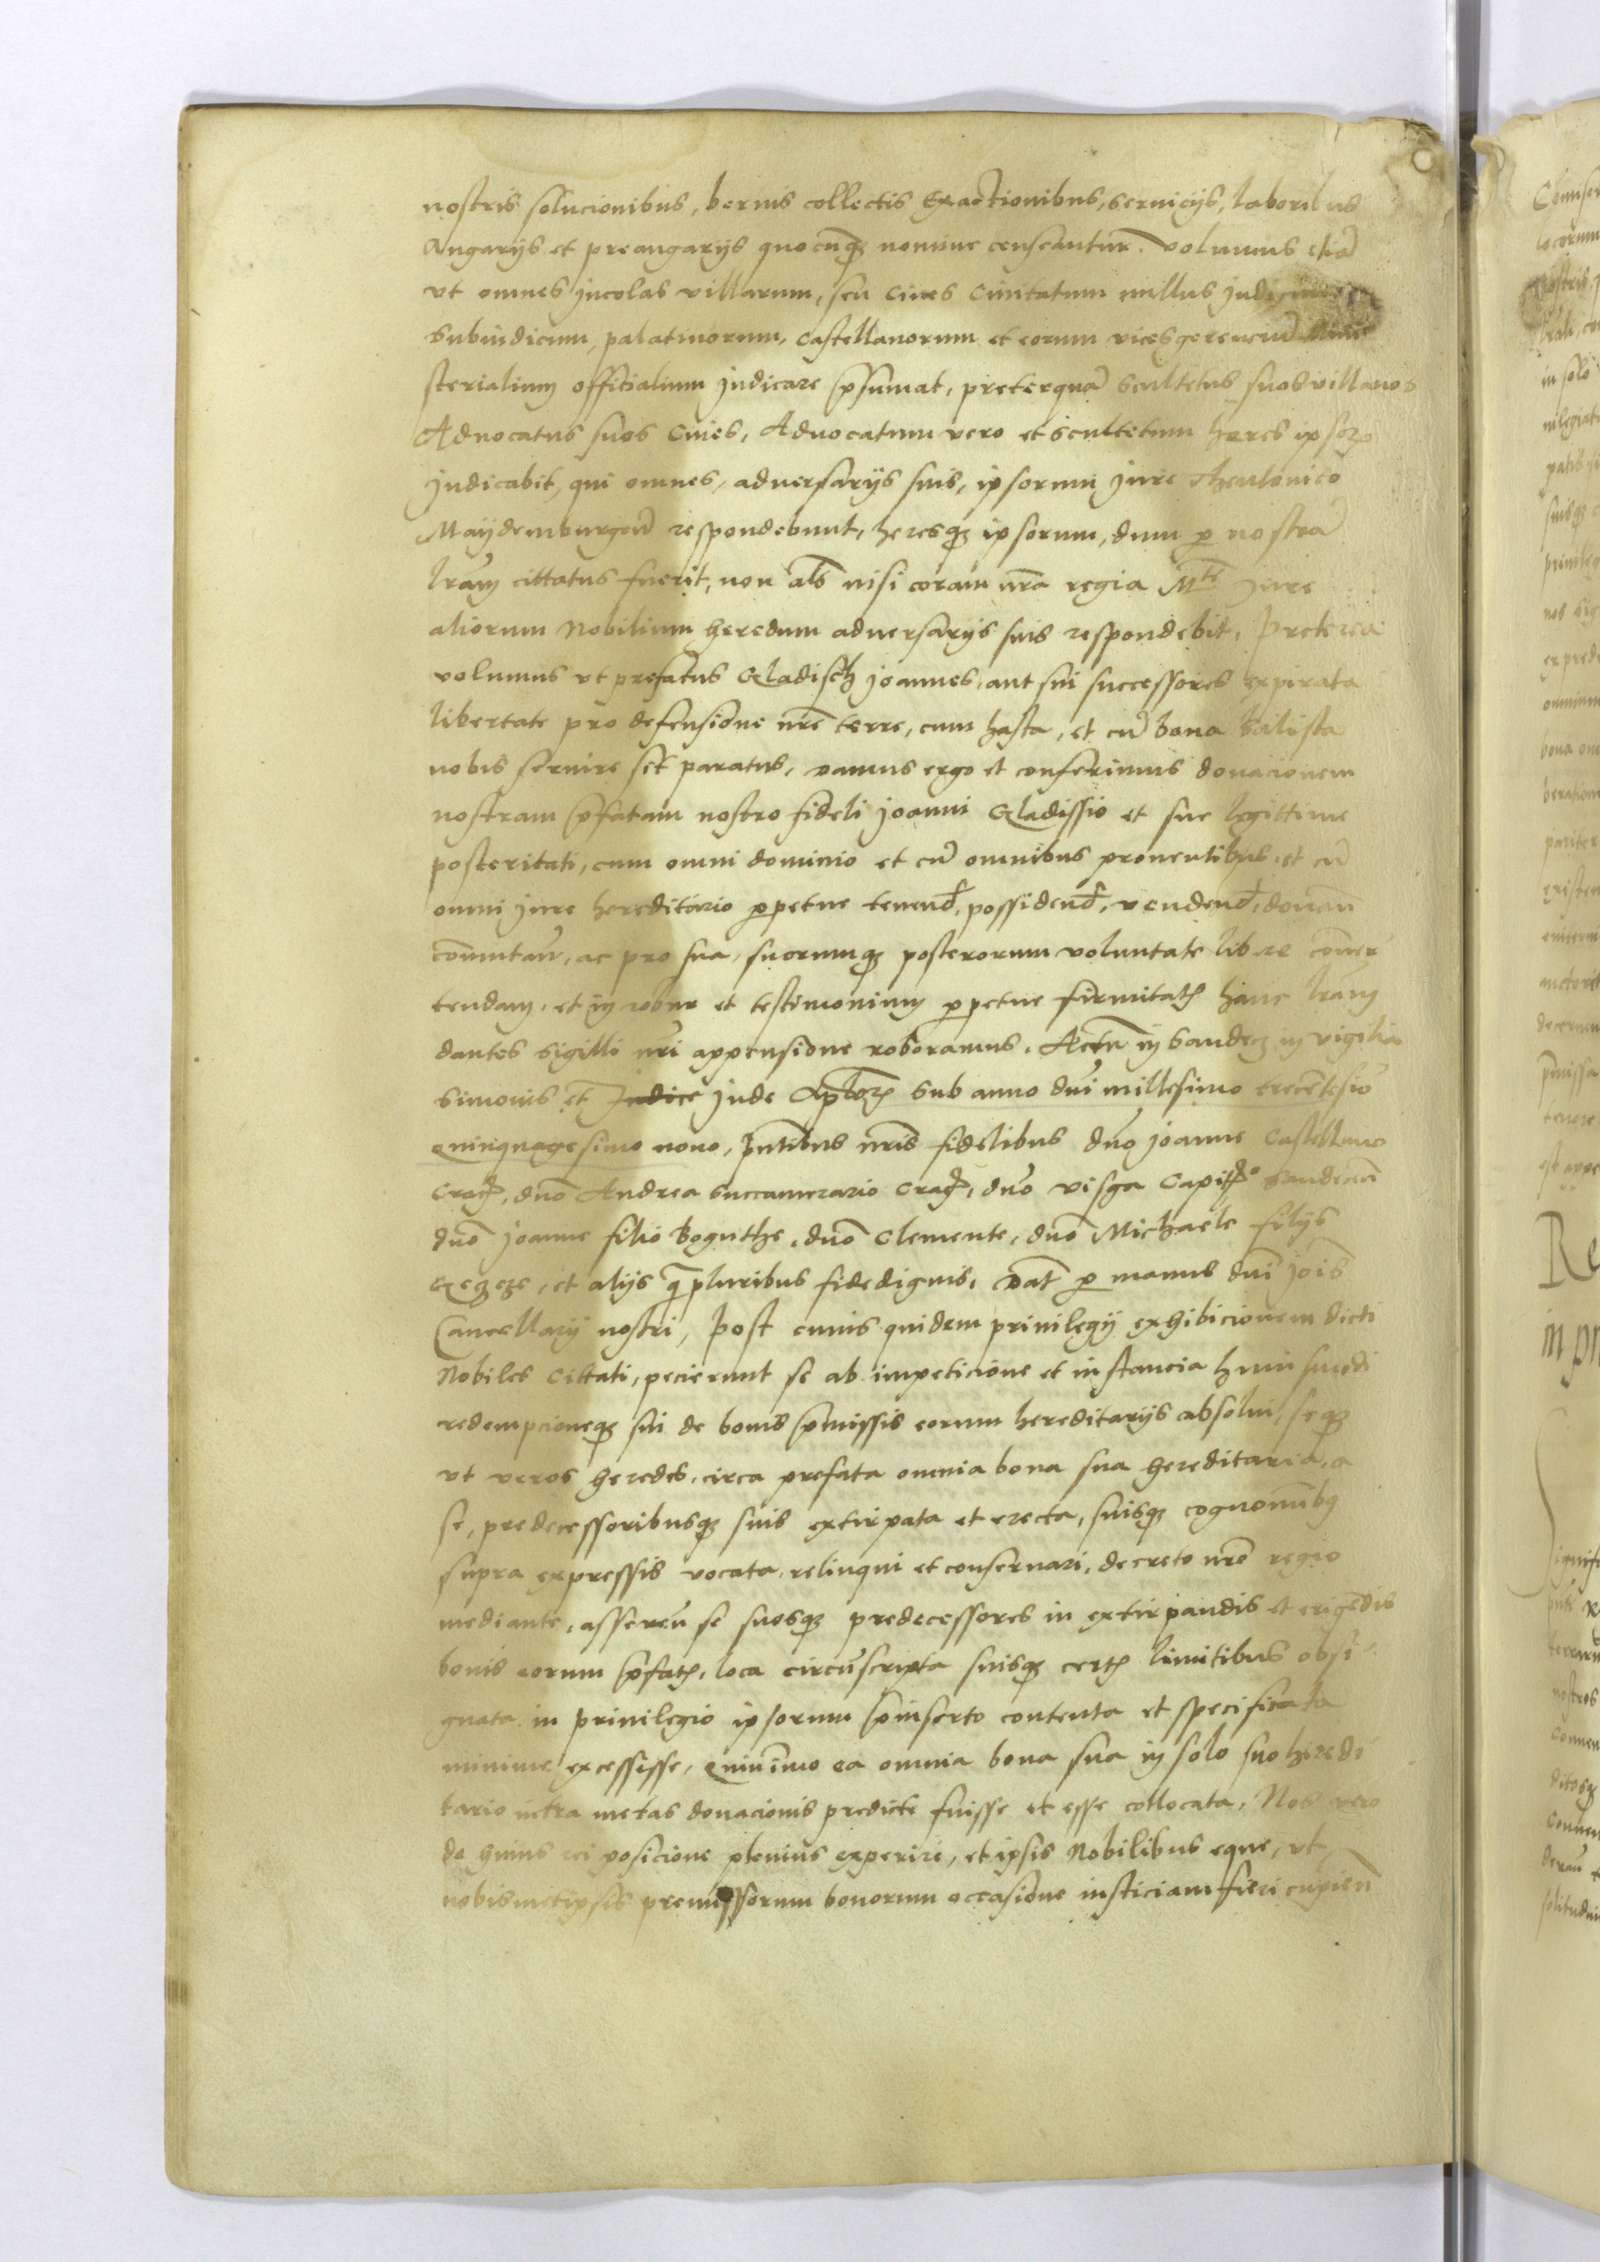 nostris solucionibus, bernis collectis Exactionibus, seruicijs, laboribus
Angarijs et preangarijs quocūqȝ nomine censeantur. Volumus etiā
vt omnes jncolas villarum, seu Ciues Ciuitatum nullus judicum
subiudicum, palatinorum, Castellanorum et eorum vicesgerenciū Mini
sterialium officialium judicare p̄sumat, preterquā scultetus suos villanos
Aduocatus suos Ciues, Aduocatum vero et scultetum heres ipsorȝ
judicabit, qui omnes, aduersarijs suis, ipsorum jure Theutonico
Maydemburgeñ respondebunt, heresqȝ ipsorum, dum p nostrā
lrām cittatus fuerit, non als̄ nisi coram nr̄a regia Mte jure
aliorum Nobilium heredum aduersarijs suis respondebit, Preterea
volumus vt prefatus Gladisch joannes, aut sui successores expirata
libertate pro defensione nr̄e terre, cum hasta, et cū bona balista
nobis seruire sit paratus, damus ergo et conferimus donacionem
nostram p̄fatam nostro fideli joanni Gladissio et sue legittime
posteritati, cum omni dominio et cū omnibus prouentibus, et cū
omni jure hereditario ppetue tenend, possidend, vendend, donan̄
com̄utan̄, ac pro sua, suorumqȝ posterorum voluntate libere conuer
tendam, et in robur et testimonium ppetue firmitatꝭ hanc lrām
dantes sigilli nr̄i appensione roboramus. Actū in Sandecȝ in vigilia
simonis et Judice jude Aplorꝭ sub anno dn̄i millesimo trecētesīo
Quinquagesimo nono, pn̄tibus nr̄is fidelibus dn̄o joanne Castellano
Crac̄, dn̄o Andrea succamerario Crac̄, dn̄o visga Capito Sandeceñ
dn̄o joanne filio Boguthe, dn̄o Clemente, dn̄o Michaele filijs
et alijs q̄pluribus fidedignis, Dat̄ p manus dn̄i jois̄
Cancellarij nostri, Post cuius quidem priuilegij exhibicionem dicti
Nobiles Cittati, pecierunt se ab impeticione et instancia huiusmodi
redempcioneqȝ sui de bonis p̄missis eorum hereditarijs absolui, seqȝ
vt veros heredes, circa prefata omnia bona sua hereditaria, a
se, predecessoribusqȝ suis extirpata et erecta, suisqȝ cognominibꝰ
supra expressis vocata, relinqui et conseruari, decreto nr̄o regio
mediante, asseren̄ se suosqȝ predecessores in extirpandis et erigēdis
bonis eorum p̄fatꝭ, loca circūscripta suisqȝ certꝭ limitibus obsi
gnata in priuilegio ipsorum p̄inserto contenta et specificata
minime excessisse, quinim̄o ea omnia bona sua in solo suo heredi
tario intra metas donacionis predicte fuisse et esse collocata, Nos vero
de huius rei posicione plenius experiri, et ipsis Nobilibus eque, vt
nobismetipsis premissorum bonorum occasione iusticiam fieri cupien̄